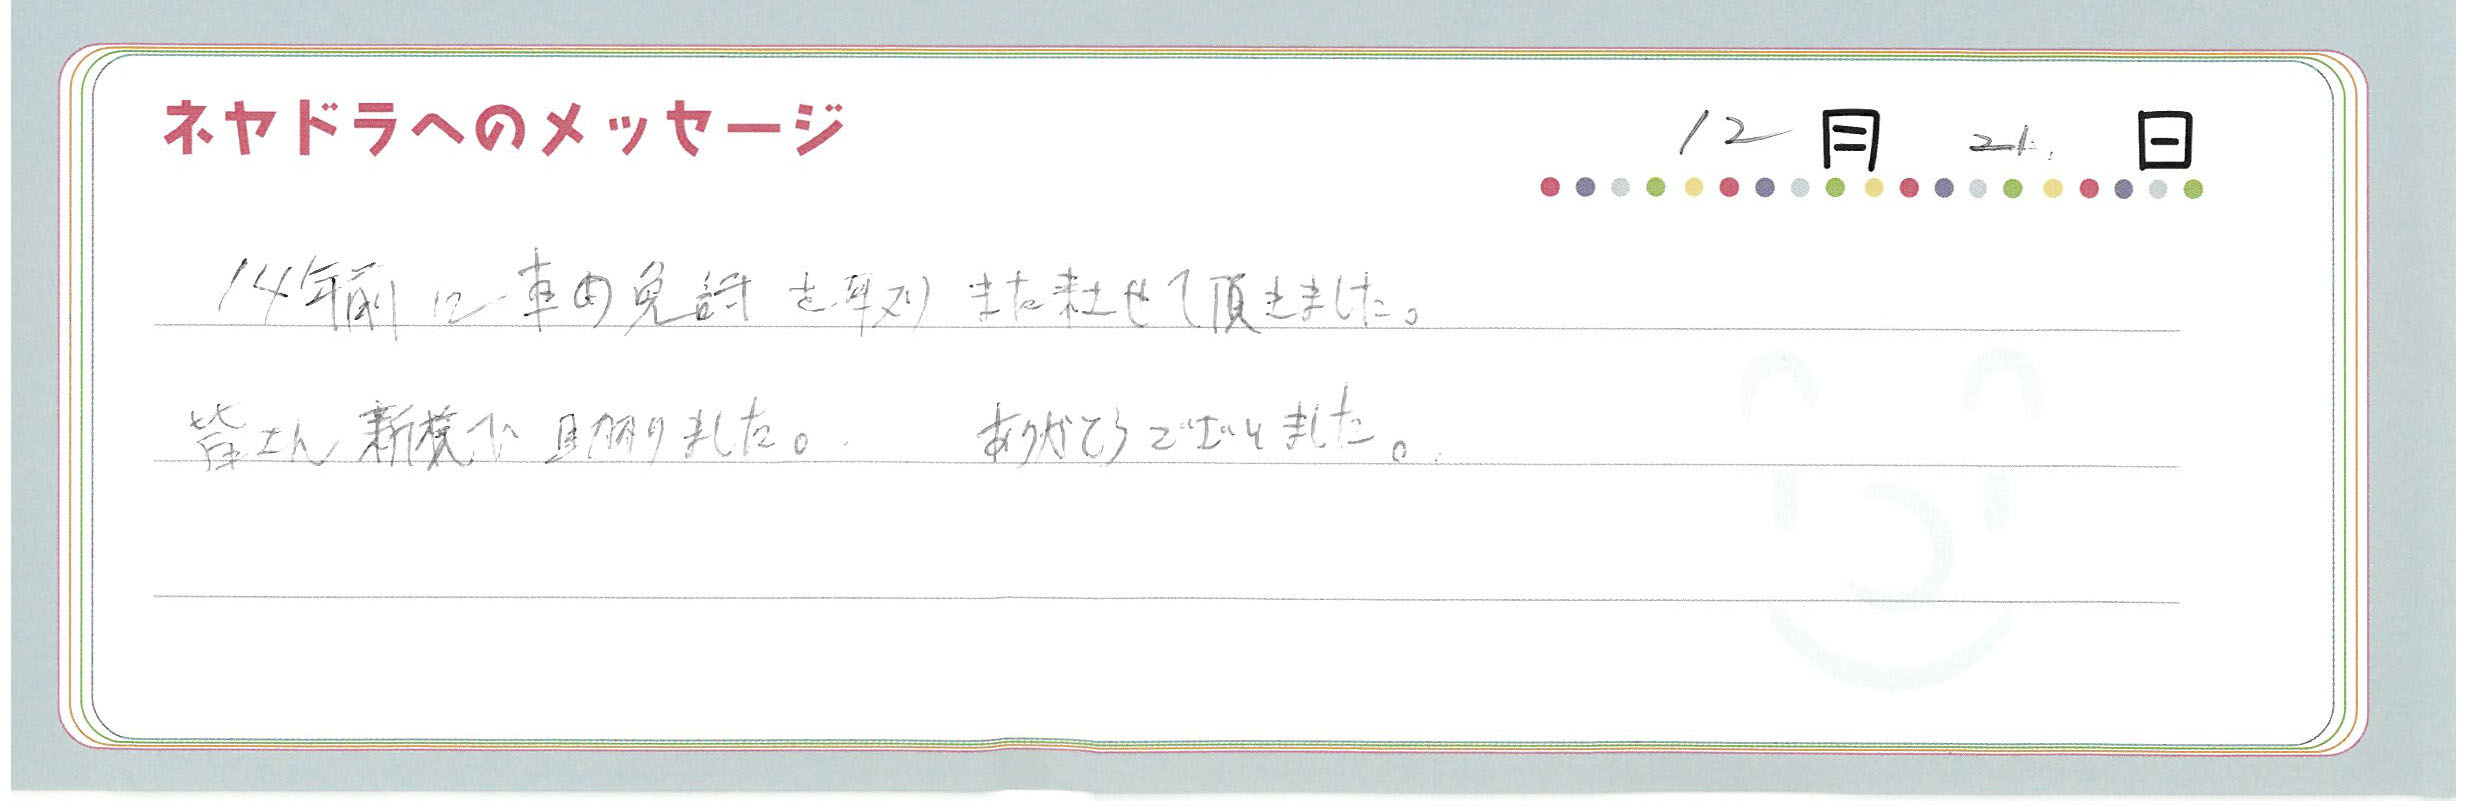 ネヤドラへのメッセージ
12月 21日
14年前に車の免許を取りまた来させて頂きました。
皆さん新様で助かりました。 ありがとうございました。